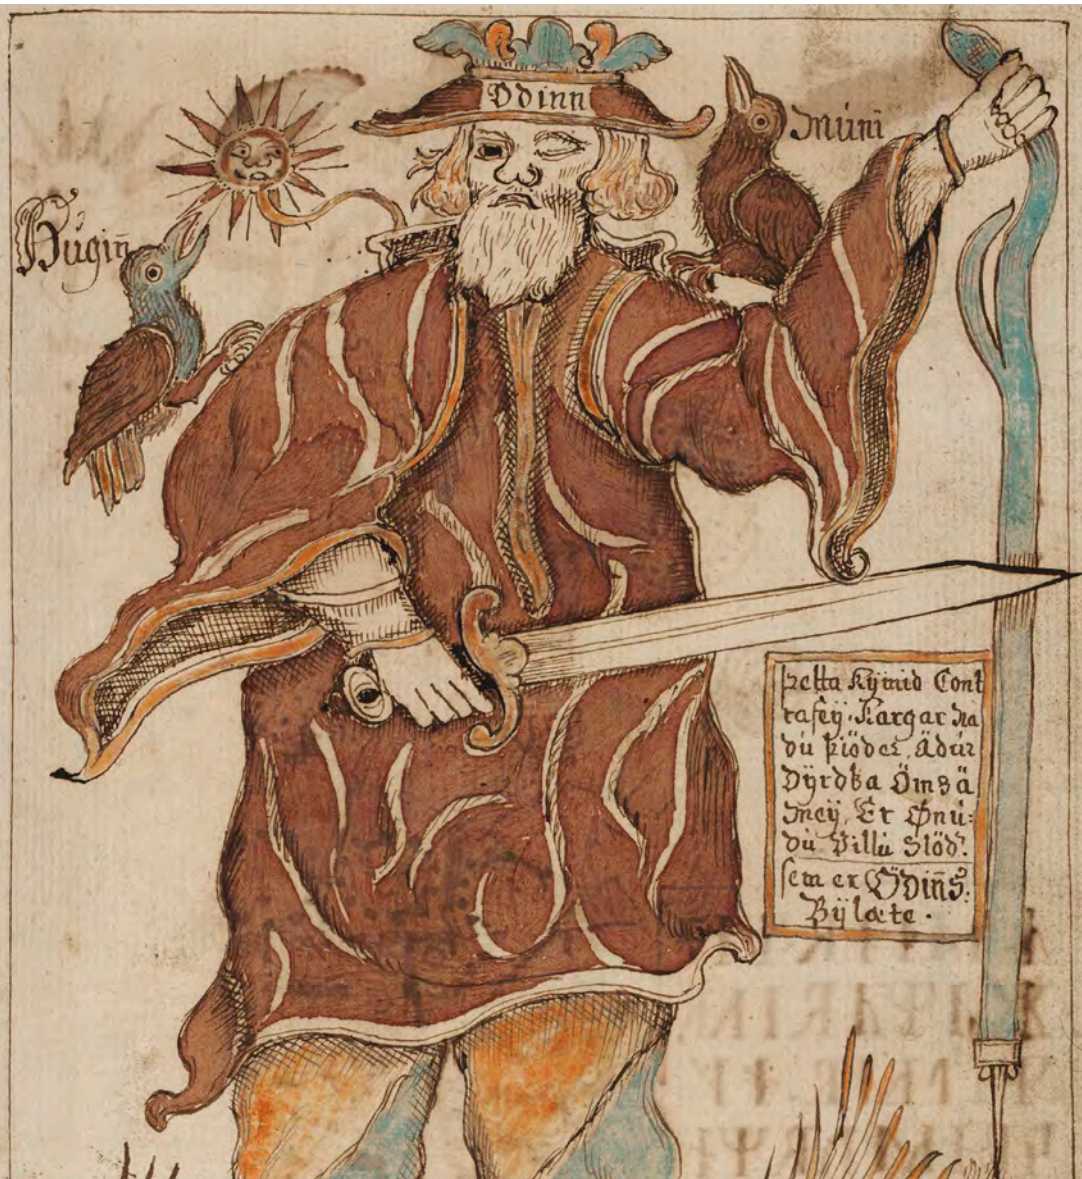 Odinn
Múni
Húgiñ
Þetta Kÿmid Cont
rafeÿ, Kargar Ha
dú þiöder, Ädúr
Dÿrdka Öms ä
Meÿ, Er Ønú:
dú Villu Slöd:
sem er ÖDiñs:
Bÿlæte.